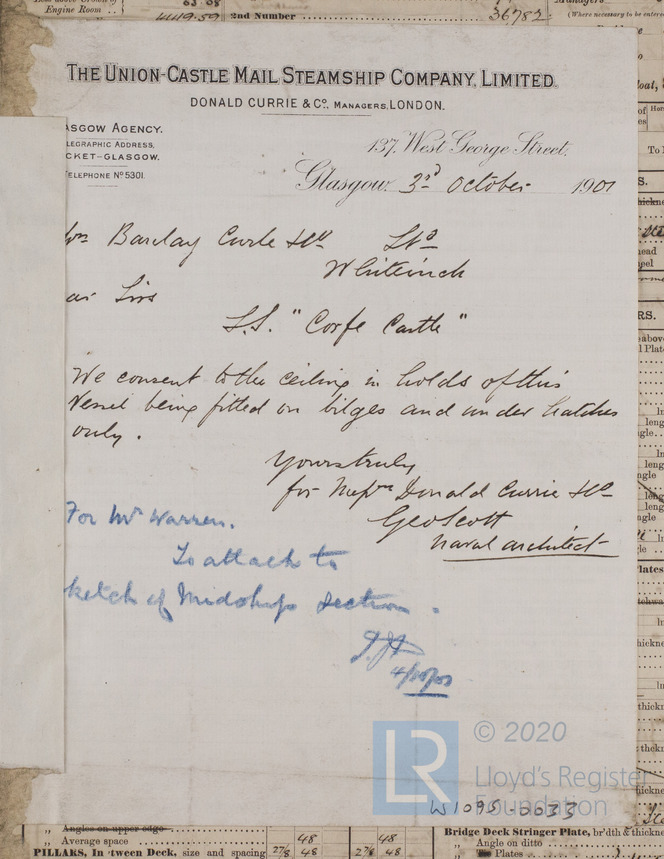 Engine Room
2nd Number
36782
(Where necessary to be entered
THE UNION-CASTLE MAIL STEAMSHIP COMPANY, LIMITED.
DONALD CURRIE & Co. MANAGERS, LONDON.
ASGOW AGENCY.
LEGRAPHIC ADDRESS,
CKET-GLASGOW.
ELEPHONE No 5301.
137, West George Street,
Glasgow. 3rd October 1901
Barclay Curle & Co Ltd
Whiteinch
Sirs
S.S. "Corfe Castle"
We consent to the ceiling in holds of this
Vessel being fitted on bilges and under hatches
only.
Yours truly
for Messrs Donald Currie & Co
Geo Scott
Naval architect
For Mr Warren.
To attach to
ketch of Midships section.
© 2020
LR
Lloyd's Register
Foundation
W1095-0033
„ Angles on upper edge
„ Average space 48 48
PILLARS, In 'tween Deck, size and spacing 2 7/8 48 2 7/8 48
Bridge Deck Stringer Plate, br'dth & thickn
„ Angle on ditto
„ Plates